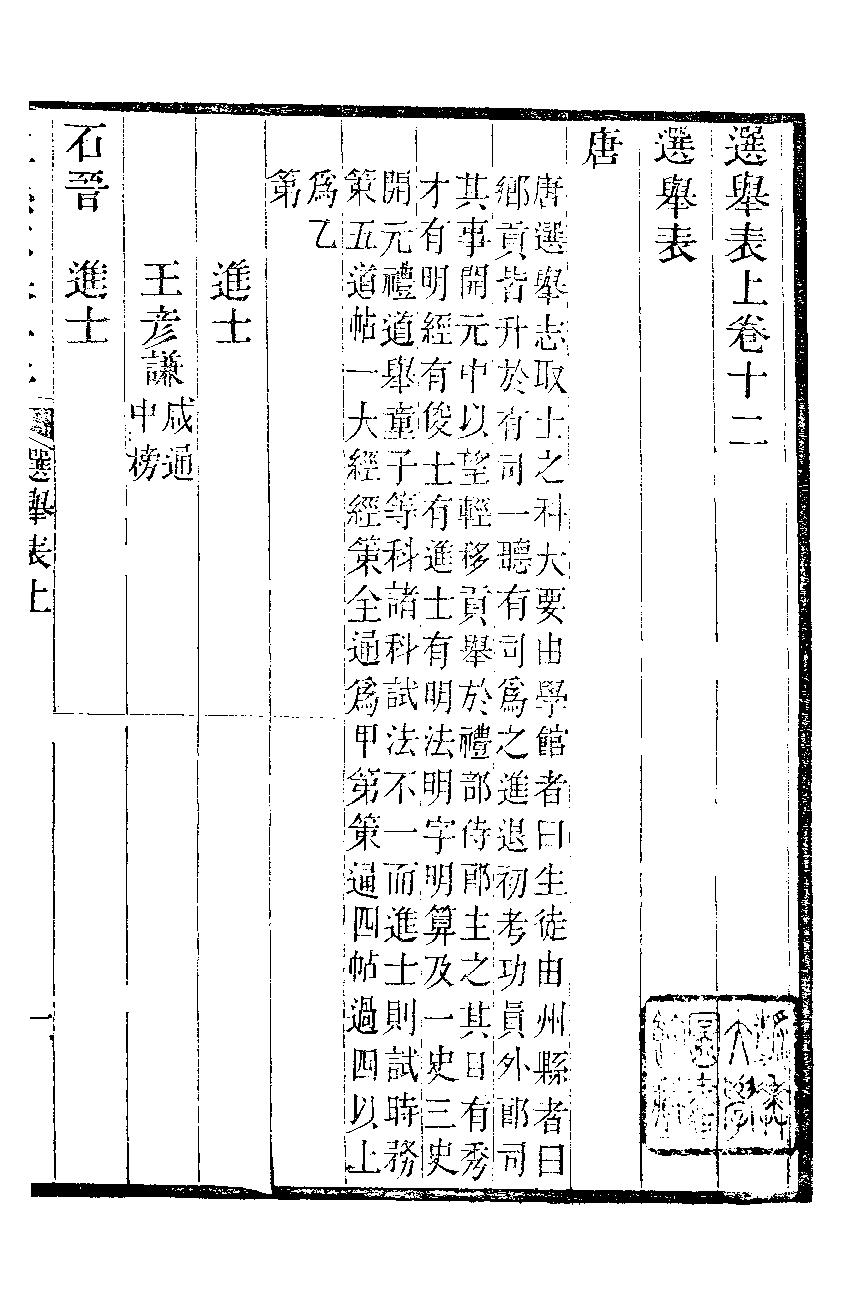 選舉表上卷十二
選舉表
唐
唐選舉志取士之科大要由學館者曰生徒由州縣者曰
鄉貢皆升於有司一聽有司爲之進退初考功員外郎司
其事開元中以望輕移貢舉於禮部侍郎主之其目有秀
才有明經有俊士有進士有明法明字明算及一史三史
開元禮道舉童子等科諸科試法不一而進士則試時務
策五道帖一大經經策全通爲甲第策通四帖過四以上
爲乙
第
進士
王彦謙
咸通
中榜
石晉 進士
選舉表上
一